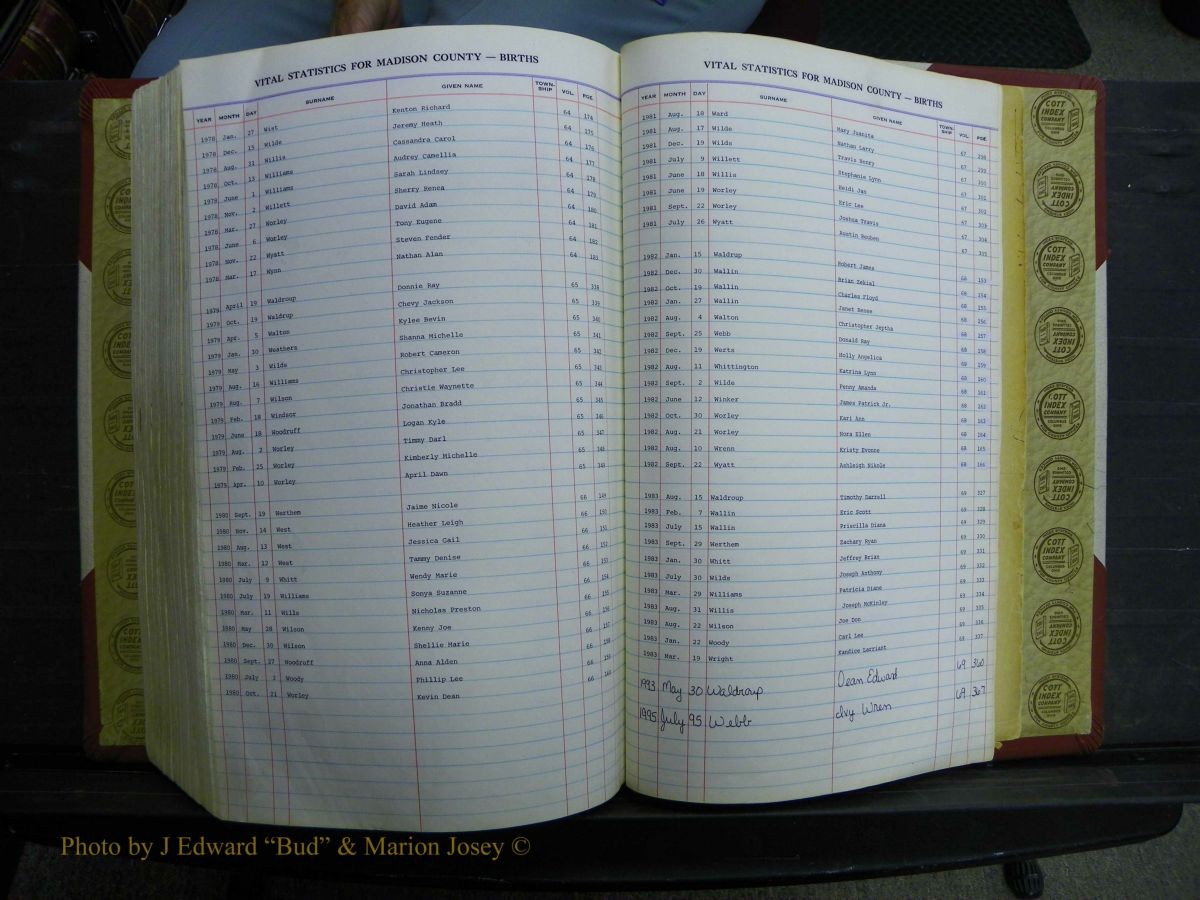 VITAL STATISTICS FOR MADISON COUNTY — BIRTHS
YEAR MONTH DAY SURNAME GIVEN NAME TOWN-SHIP VOL. PGE.
1978 Jan. 27 Wist Kenton Richard 64 174
1978 Dec. 15 Wilde Jeremy Heath 64 175
1978 Aug. 31 Willis Cassandra Carol 64 176
1978 Oct. 13 Williams Audrey Camellia 64 177
1978 June 1 Williams Sarah Lindsey 64 178
1978 Nov. 2 Willett Sherry Renea 64 179
1978 Mar. 27 Worley David Adam 64 180
1978 June 6 Worley Tony Eugene 64 181
1978 Nov. 22 Wyatt Steven Fender 64 182
1978 Mar. 17 Wynn Nathan Alan 64 183
1979 April 19 Waldroup Donnie Ray 65 338
1979 Oct. 19 Waldrup Chevy Jackson 65 339
1979 Apr. 5 Walton Kylee Bevin 65 340
1979 Jan. 30 Weathers Shanna Michelle 65 341
1979 May 3 Wilds Robert Cameron 65 342
1979 Aug. 16 Williams Christopher Lee 65 343
1979 Aug. 7 Wilson Christie Waynette 65 344
1979 Feb. 18 Windsor Jonathan Bradd 65 345
1979 June 18 Woodruff Logan Kyle 65 346
1979 Aug. 2 Worley Timmy Darl 65 347
1979 Feb. 25 Worley Kimberly Michelle 65 348
1979 Apr. 10 Worley April Dawn 65 349
1980 Sept. 19 Werthem Jaime Nicole 66 149
1980 Nov. 14 West Heather Leigh 66 150
1980 Aug. 13 West Jessica Gail 66 151
1980 Mar. 12 West Tammy Denise 66 152
1980 July 9 Whitt Wendy Marie 66 153
1980 July 19 Williams Sonya Suzanne 66 154
1980 Mar. 11 Wills Nicholas Preston 66 155
1980 May 28 Wilson Kenny Joe 66 156
1980 Dec. 30 Wilson Shellie Marie 66 157
1980 Sept. 27 Woodruff Anna Alden 66 158
1980 July 2 Woody Phillip Lee 66 159
1980 Oct. 21 Worley Kevin Dean 66 160
VITAL STATISTICS FOR MADISON COUNTY — BIRTHS
YEAR MONTH DAY SURNAME GIVEN NAME TOWN-SHIP VOL. PGE.
1981 Aug. 18 Ward Mary Juanita 67 298
1981 Aug. 17 Wilde Nathan Larry 67 299
1981 Dec. 19 Wilds Travis Henry 67 300
1981 July 9 Willett Stephanie Lynn 67 301
1981 June 18 Willis Heidi Jan 67 302
1981 June 19 Worley Eric Lee 67 303
1981 Sept. 22 Worley Joshua Travis 67 304
1981 July 26 Wyatt Austin Reuben 67 305
1982 Jan. 15 Waldrup Robert James 68 153
1982 Dec. 30 Wallin Brian Zekial 68 154
1982 Oct. 19 Wallin Charles Floyd 68 155
1982 Jan. 27 Wallin Janet Renee 68 156
1982 Aug. 4 Walton Christopher Jeptha 68 157
1982 Sept. 25 Webb Donald Ray 68 158
1982 Dec. 19 Werts Holly Angelica 68 159
1982 Aug. 11 Whittington Katrina Lynn 68 160
1982 Sept. 2 Wilde Penny Amanda 68 161
1982 June 12 Winker James Patrick Jr. 68 162
1982 Oct. 30 Worley Kari Ann 68 163
1982 Aug. 21 Worley Nora Ellen 68 164
1982 Aug. 10 Wrenn Kristy Evonne 68 165
1982 Sept. 22 Wyatt Ashleigh Nikole 68 166
1983 Aug. 15 Waldroup Timothy Darrell 69 327
1983 Feb. 7 Wallin Eric Scott 69 328
1983 July 15 Wallin Priscilla Diana 69 329
1983 Sept. 29 Werthem Zachary Ryan 69 330
1983 Jan. 30 Whitt Jeffrey Brian 69 331
1983 July 30 Wilde Joseph Anthony 69 332
1983 Mar. 29 Williams Patricia Diane 69 333
1983 Aug. 31 Willis Joseph McKinley 69 334
1983 Aug. 22 Wilson Joe Don 69 335
1983 Jan. 22 Woody Carl Lee 69 336
1983 Mar. 19 Wright Kandice Lerriant 69 337
1993 May 30 Waldroup Dean Edward 69 360
1995 July 95 Webb Ivy Wren 69 367
COTT INDEX COMPANY COLUMBUS OHIO
Photo by J Edward “Bud” & Marion Josey ©